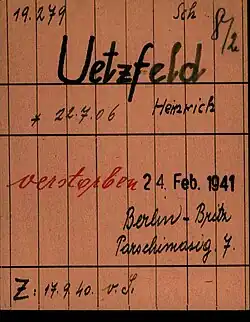 19.279 Sch 8/2
Uetzfeld
* 22.7.06 Heinrich
verstorben 24. Feb. 1941
Berlin - Britz
Parchimasig. 7.
Z: 17.9.40. v. S.